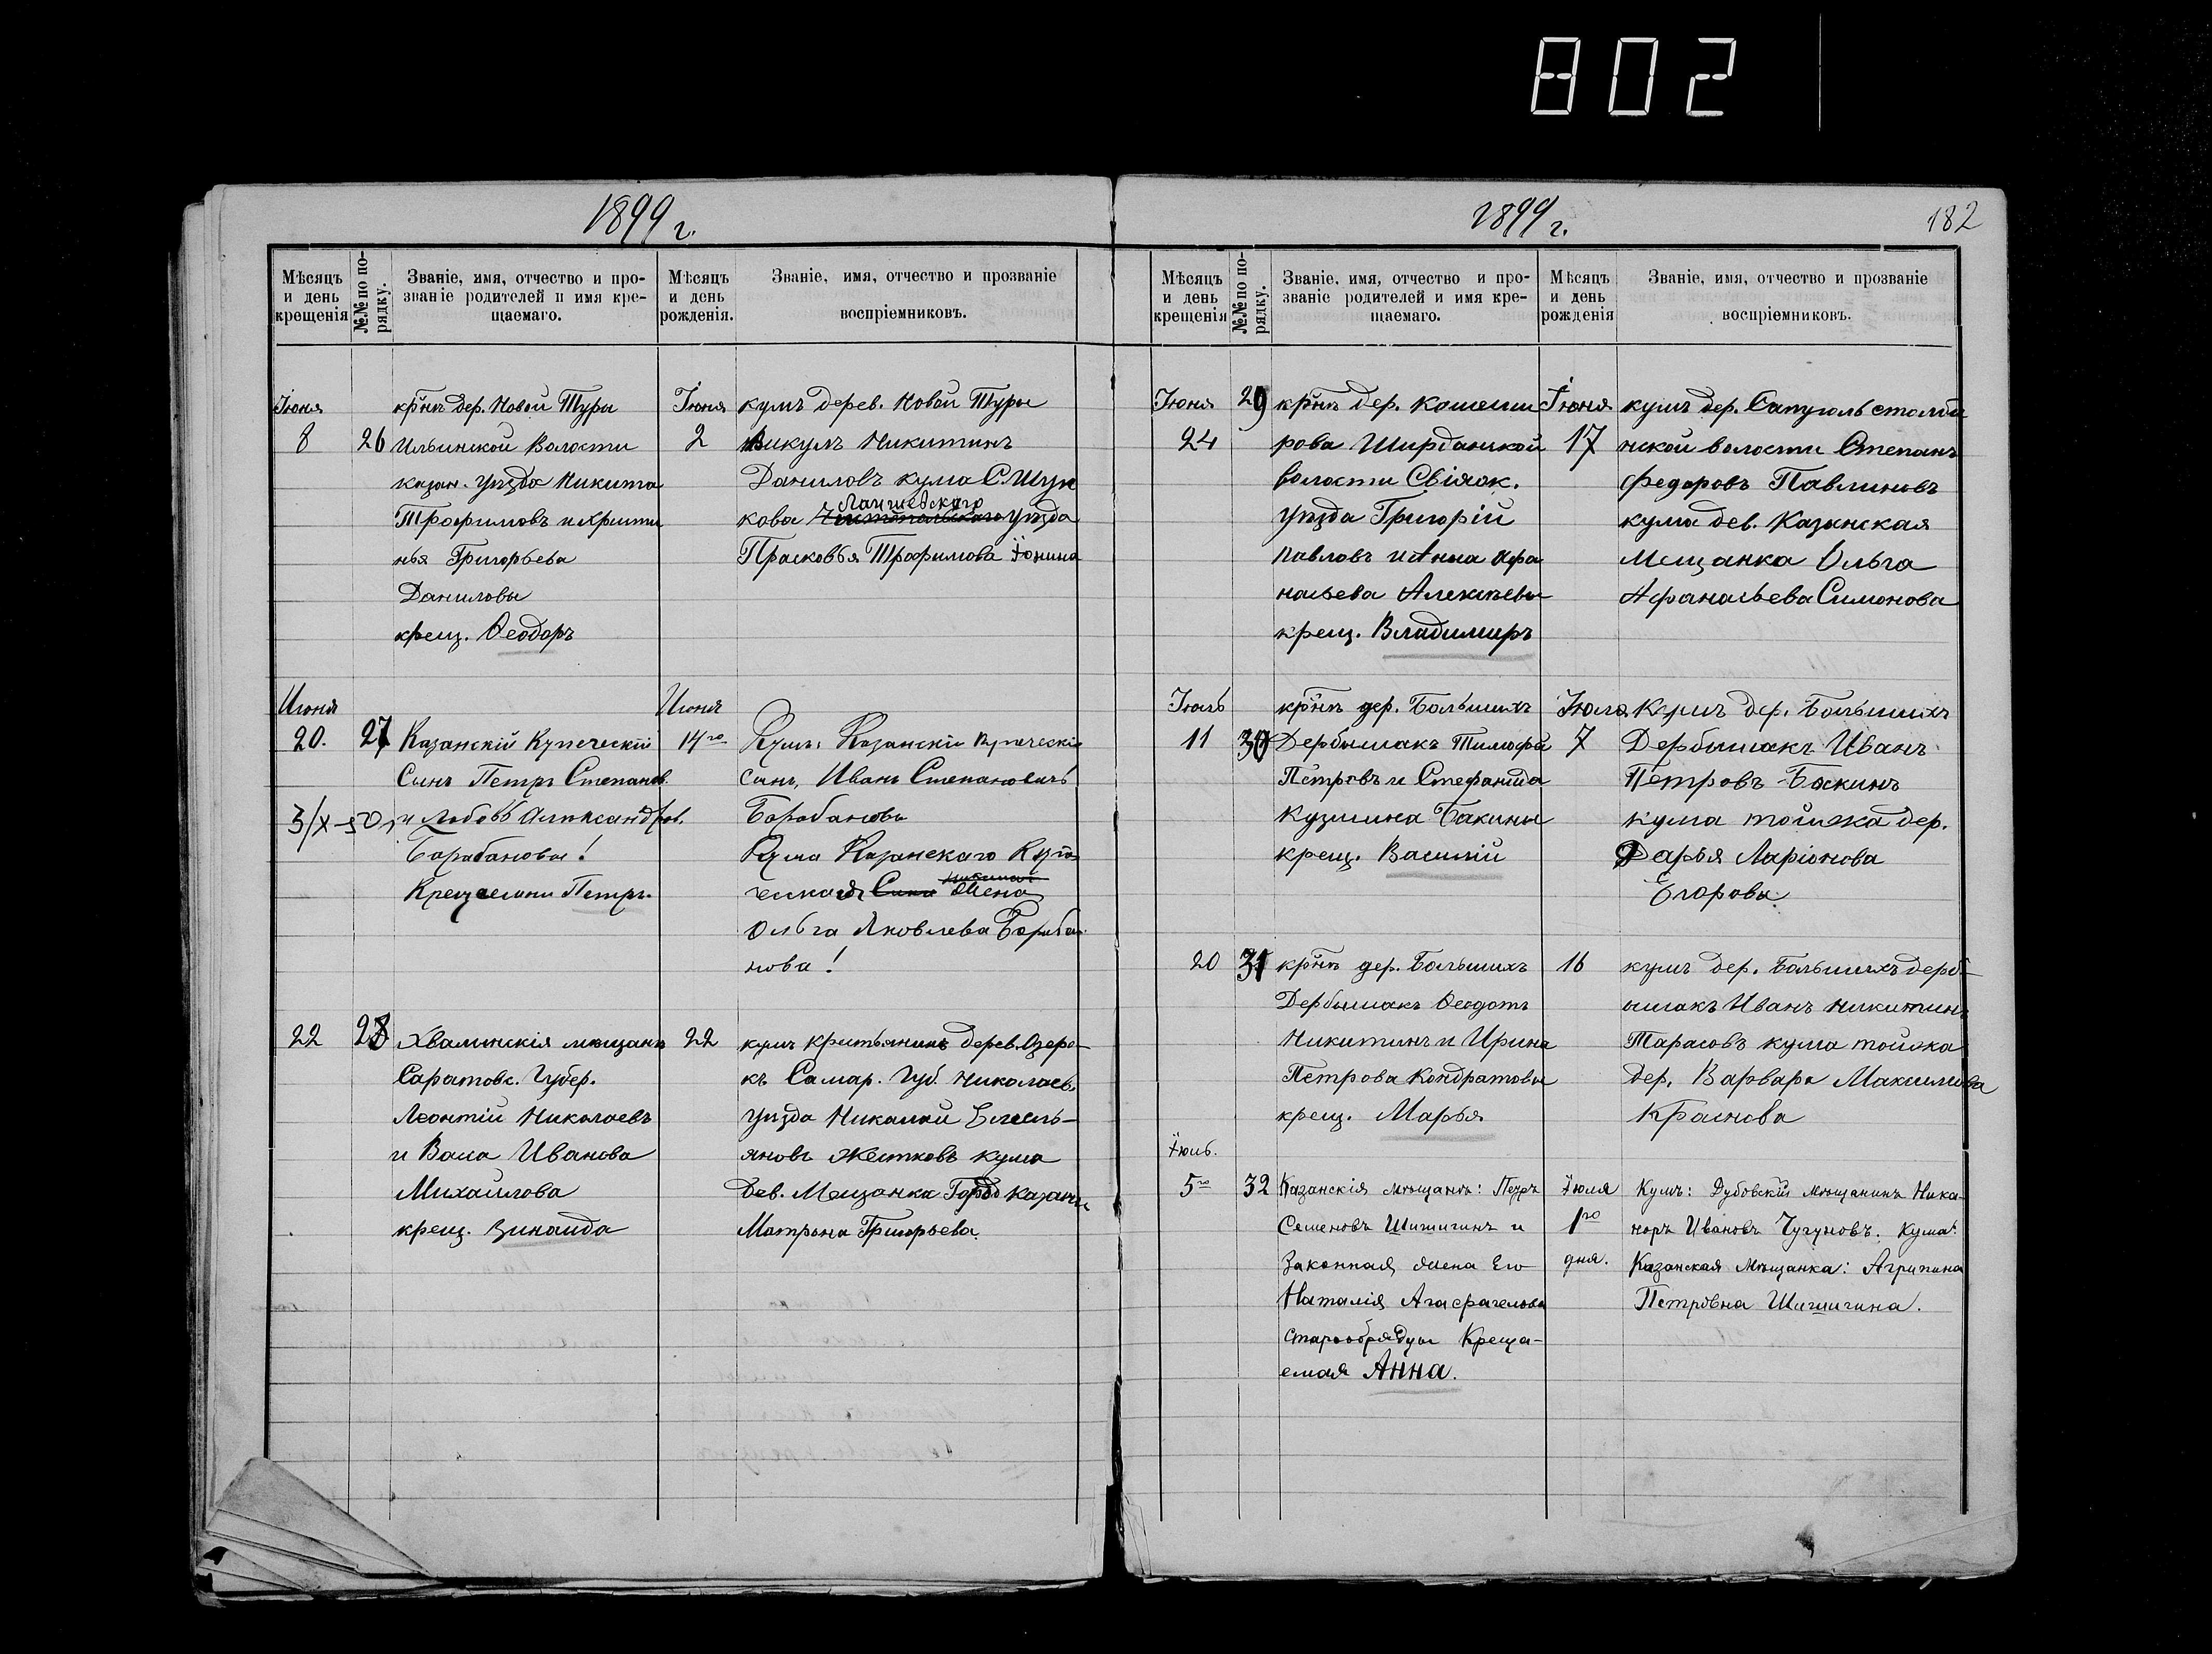 802
1899 г.
Мѣсяцъ и день крещенія
№№ по порядку.
Званіе, имя, отчество и прозваніе родителей и имя крещаемаго.
Мѣсяцъ и день рожденія.
Званіе, имя, отчество и прозваніе воспріемниковъ.
Іюня
8
26
крнъ дер. Новой Туры
Ильинской Волости
казан. уѣзда Никита
Трофимовъ и Христи
нья Григорьева
Даниловы
крещ. Ѳеодоръ
Іюня
2
кумъ дерев. Новой Туры
Викулъ Никитинъ
Даниловъ кума С. Шун
Лаишевскаго
кова Чистопольскаго уѣзда
Прасковья Трофимова Іонина
Июня
20.
27
3/X-50
Казанскій Купеческій
Сынъ Петръ Степанов.
и Любовь Александров.
Барабановы!
Крещаемы Петръ.
Июня
14го
Кумъ: Казанскій Купческій
сынъ, Иванъ Степановичъ
Барабановъ
Кума Казанскаго Купе
ческая Сына Жена
Ольга Яковлева Бараба
нова!
22
28
Хвалынскія мѣщане
Саратовс. Губер.
Леонтій Николаевъ
и Васа Иванова
Михайлова
крещ. Зинаида
22
кумъ крестьянинъ дерев. Озеро-
къ Самар. Губ. Николаев.
уѣзда Николай Емель-
яновъ Жестковъ кума
Дев. Мещанка Город Казань
Матрона Григорьева.
1899 г.
182
Мѣсяцъ и день крещенія
№№ по порядку.
Званіе, имя, отчество и прозваніе родителей и имя крещаемаго.
Мѣсяцъ и день рожденія
Званіе, имя, отчество и прозваніе воспріемниковъ.
Іюня
24
29
крнъ дер. Кошеми
рова Ширданской
волости Свіяж.
уѣзда Григорій
Павловъ и Анна Афа
насьева Алексѣевы
крещ. Владимиръ
Іюня
17
кумъ дер. Сапуголь столби
нской волости Степанъ
Федоровъ Павлиновъ
кума дев. Казанская
Мещанка Ольга
Афанасьева Симонова
Іюль
11
30
крнъ дер. Большихъ
Дербышакъ Тимофѣ
Петровъ и Стефанида
Кузмина Бакины
крещ. Василій
Іюля
7
Кумъ дер. Большихъ
Дербышакъ Иванъ
Петровъ Бакинъ
кума тойжа дер.
Дарья Ларіонова
Егорова.
20
31
крнъ дер. Большихъ
Дербышакъ Ѳеодотъ
Никитинъ и Ирина
Петрова Кондратовы
крещ. Марья
16
кумъ дер. Большихъ дерб-
ышакъ Иванъ Никитинъ
Тарасовъ кума тойжа
дер. Варвара Максимова
Краснова
Іюль.
5го
32
Казанскія мѣщане: Петръ
Семеновъ Шишигинъ и
Законная жена Его
Наталія Агафагелова
старообрядцы Креща-
емая Анна.
Іюля
1го
дня.
Кумъ: Дубовскій мѣщанинъ Ника-
норъ Ивановъ Чугуновъ. Кума:
Казанская Мѣщанка: Агрипина
Петровна Шишигина.